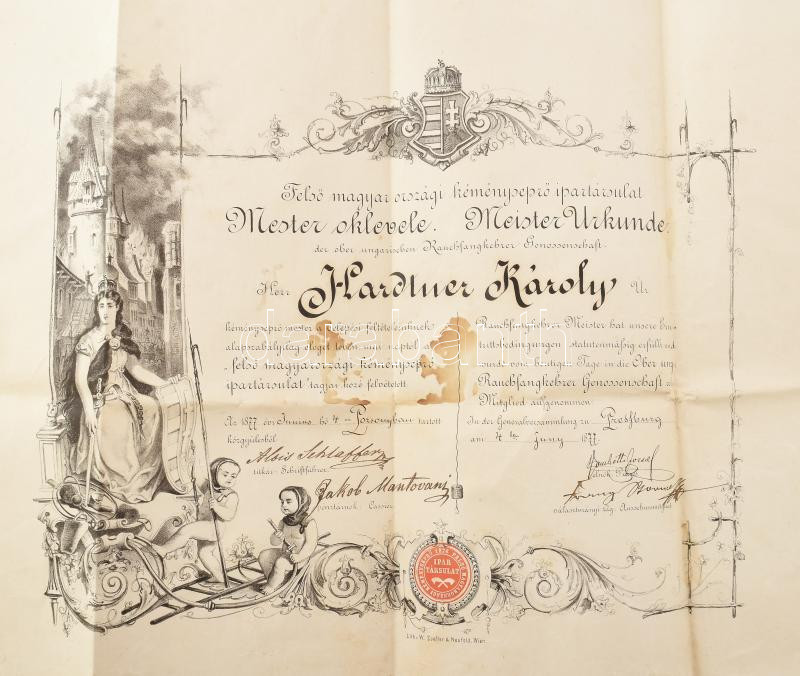 Felső magyar országi kéményseprő ipartársulat
Mester oklevele. Meister Urkunde.
der ober ungarischen Rauchfangkehrer Genossenschaft.
Herr Hardtner Károly Úr
kéményseprő mester belépési feltételeinknek
alapszabályilag eleget tévén, mai naptól a
felső magyarországi kéményseprő
ipartársulat tagjai közé felvétetett.
Az 1877 évi Junius hó 4 én Pozsonyban tartott
közgyülésből
Alois Schlaffer
titkár Schriftführer.
Jakob Mantovani
pénztárnok Cassier
Rauchfangkehrer Meister hat unsere
tittsbedingungen statutenmäßig erfüllt
wurde vom heutigen Tage in die Ober ung.
Rauchfangkehrer Genossenschaft
Mitglied aufgenommen
In der Generalversammlung zu Pressburg
am 4 ten Juny 1877
elnök
Franz
választmányi tag Ausschussmitglied
1876
IPAR
TÁRSULAT
Lith. W. Zoeller & Neufeld, Wien.
darabanth.com